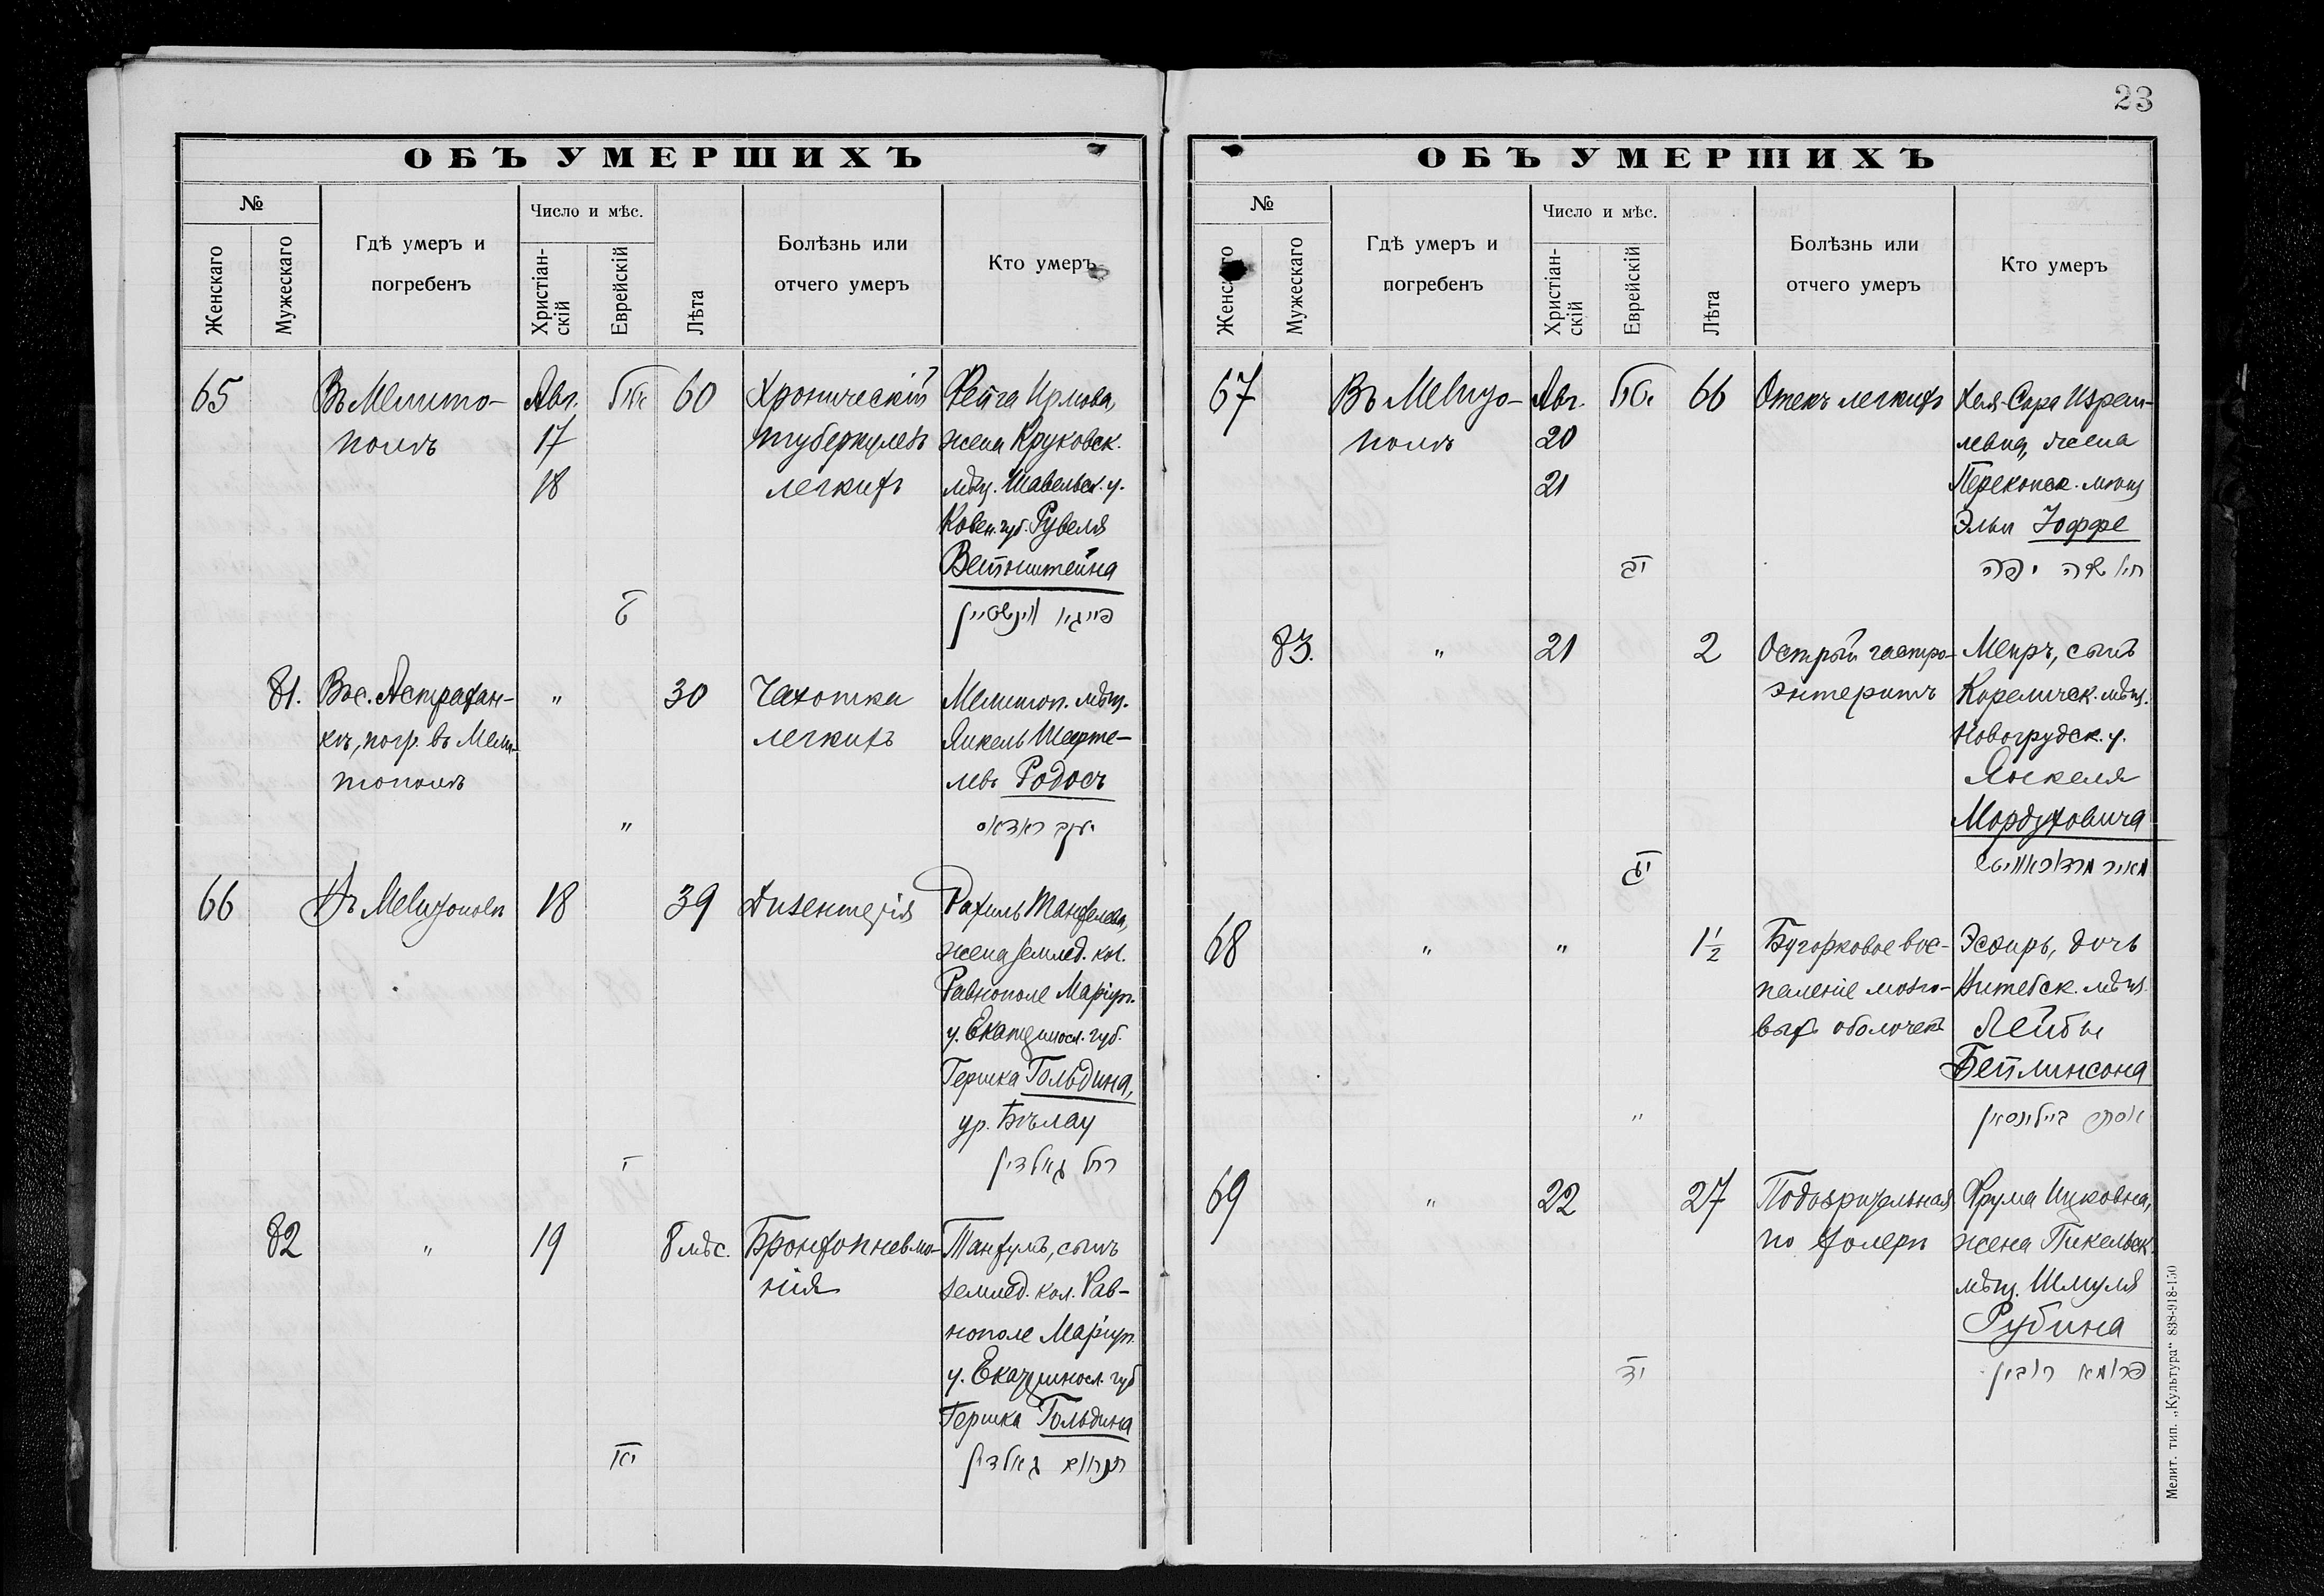 23
ОБЪ УМЕРШИХЪ
№
Женскаго
Мужескаго
Гдѣ умеръ и
погребенъ
Число и мѣс.
Христіан-
скій
Еврейскій
Лѣта
Болѣзнь или
отчего умеръ
Кто умеръ
65
Въ Мелито-
полѣ
Авг.
17
18
ט
60
Хроническій
туберкулезъ
легкихъ
Фейга
жена Круковск.
мѣщ. Шавельск. у.
Ковен. губ. Рувеля
Вейнштейна
81.
Въ с. Астрахан-
кѣ, погр. въ Мели-
тополѣ
"
"
30
Чахотка
легкихъ
Мелитоп. мѣщ.
Янкель
левъ Родосъ
יעקב ראדאס
66
Въ Мелитополѣ
18
י
39
Дизентерія
Рахиль Танхелева,
жена землед. кол.
Равнополе Маріуп.
у. Екатеринос. губ.
Гершка Гольдина,
ур.
רחל גאלדין
82
"
19
יא
8 мѣс.
Бронхопневмо-
нія
Танхумъ, сынъ
землед. кол. Рав-
нополе Маріуп.
у. Екатеринос. губ
Гершка Гольдина
תנחום גאלדין
ОБЪ УМЕРШИХЪ
№
Женскаго
Мужескаго
Гдѣ умеръ и
погребенъ
Число и мѣс.
Христіан-
скій
Еврейскій
Лѣта
Болѣзнь или
отчего умеръ
Кто умеръ
67
Въ Мелито-
полѣ
Авг.
20
21
יב
66
Отекъ легкихъ
Хая-Сара Израи-
левна, жена
Перекопск. мѣщ
Эльи Іоффе
חי' שרה יפה
83.
"
21
יג
2
Острый гастро-
энтеритъ
Меиръ, сынъ
Кореличск. мѣщ.
Новогрудск. у.
Янкеля
Мордуховича
מאיר מרדכאוויטש
68
"
"
"
1½
Бугорковое вос-
паленіе мозго-
выхъ оболочекъ
Эсфирь, дочь
Витебск. мѣщ.
Лейбы
Бейлинсона
אסתר ביילינסאן
69
"
22
יד
27
Подозрительная
по холерѣ
Фрума Ицковна,
жена Пикельск.
мѣщ. Шмуля
Рубина
פרומא רובין
Мелит. тип. „Культура“ 838-918-150